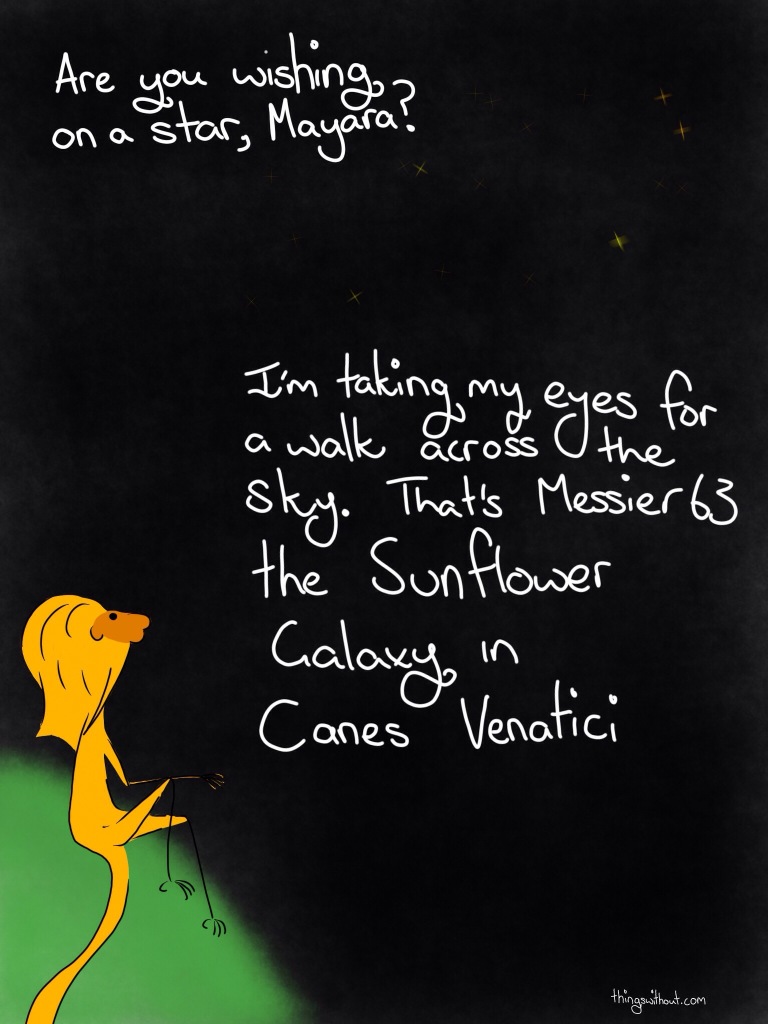 Are you wishing
on a star, Mayara?
I'm taking my eyes for
a walk across the
sky. That's Messier 63
the Sunflower
Galaxy in
Canes Venatici
thingswithout.com